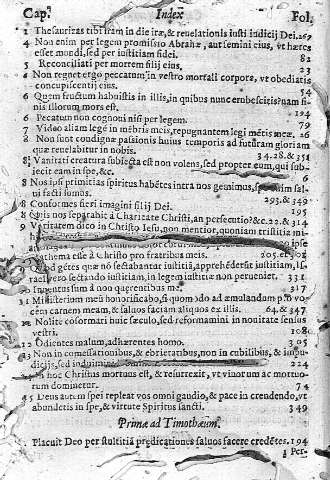 Cap. Index Fol.
2 Thesaurizas tibi iram in die iræ, & reuelationis iusti iudicij Dei. 267
4 Non enim per legem promissio Abrahæ, aut semini eius, vt hæres
esset mundi, sed per iustitiam fidei. 82
5 Reconciliati per mortem filij eius. 23
6 Non regnet ergo peccatum in vestro mortali corpore, vt obediatis
concupiscentij eius. 54
6 Quem fructum habuistis in illis, in quibus nunc erubescitis? nam fi-
nis illorum mors est. 124
6 Pecatum non cognoui nisi per legem. 79
7 Video aliam legē in mēbris meis, repugnantem legi mētis meæ. 26
8 Non sunt condignæ passionis huius temporis ad futuram gloriam
quæ reuelabitur in nobis. 34.28. & 351
8 Vanitati creatura subiecta est non volens, sed propter eum, qui sub-
iecit eam in spe, &c. 6
8 Nos ipsi primitias spiritus habētes intra nos genimus, spe enim sal-
ui facti sumus. 293, & 349
8 Conformes fieri imagini filij Dei. 195
8 Quis nos separabit à Charitate Christi, an persecutio? &c. 22. & 314
9 Veritatem dico in Christo Iesu, non mentior, quoniam tristitia mi-
ipse
anathema esse à Christo pro fratribus meis. 205. et
Quod gētes quæ nō sectabantur iustitiā, apprehēderūt iustitiam, Is-
rael vero sectando iustitiam, in legem iustitiæ non peruenit. 331.
Inuentus sum à non quærentibus me. 317
11 Ministerium meū honorificabo, si quom odo ad æmulandum pro uo
cem carnem meam, & saluos faciam aliquos ex illis. 64. & 347
12 Nolite cosormati huic sæculo, sed reformamini in nouitate sensus
vestri. 108.
12 Odientes malum, adhærentes homo. 305
13 Non in comessationibus, & ebrietatibus, non in cubilibus, & impu-
dicijs, sed induimini 224
hoc Christus mortuus est, & resurrexit, vt viuorum ac mortuo-
rum dominetur. 74
15 Deus autem spei repleat vos omni gaudio, & pace in crendendo, vt
abundetis in spe, & virtute Spiritus sancti. 349
Primæ ad Timothæum.
1 Placuit Deo per stultitiā predicationes saluos facere credētes. 194
1 Per-